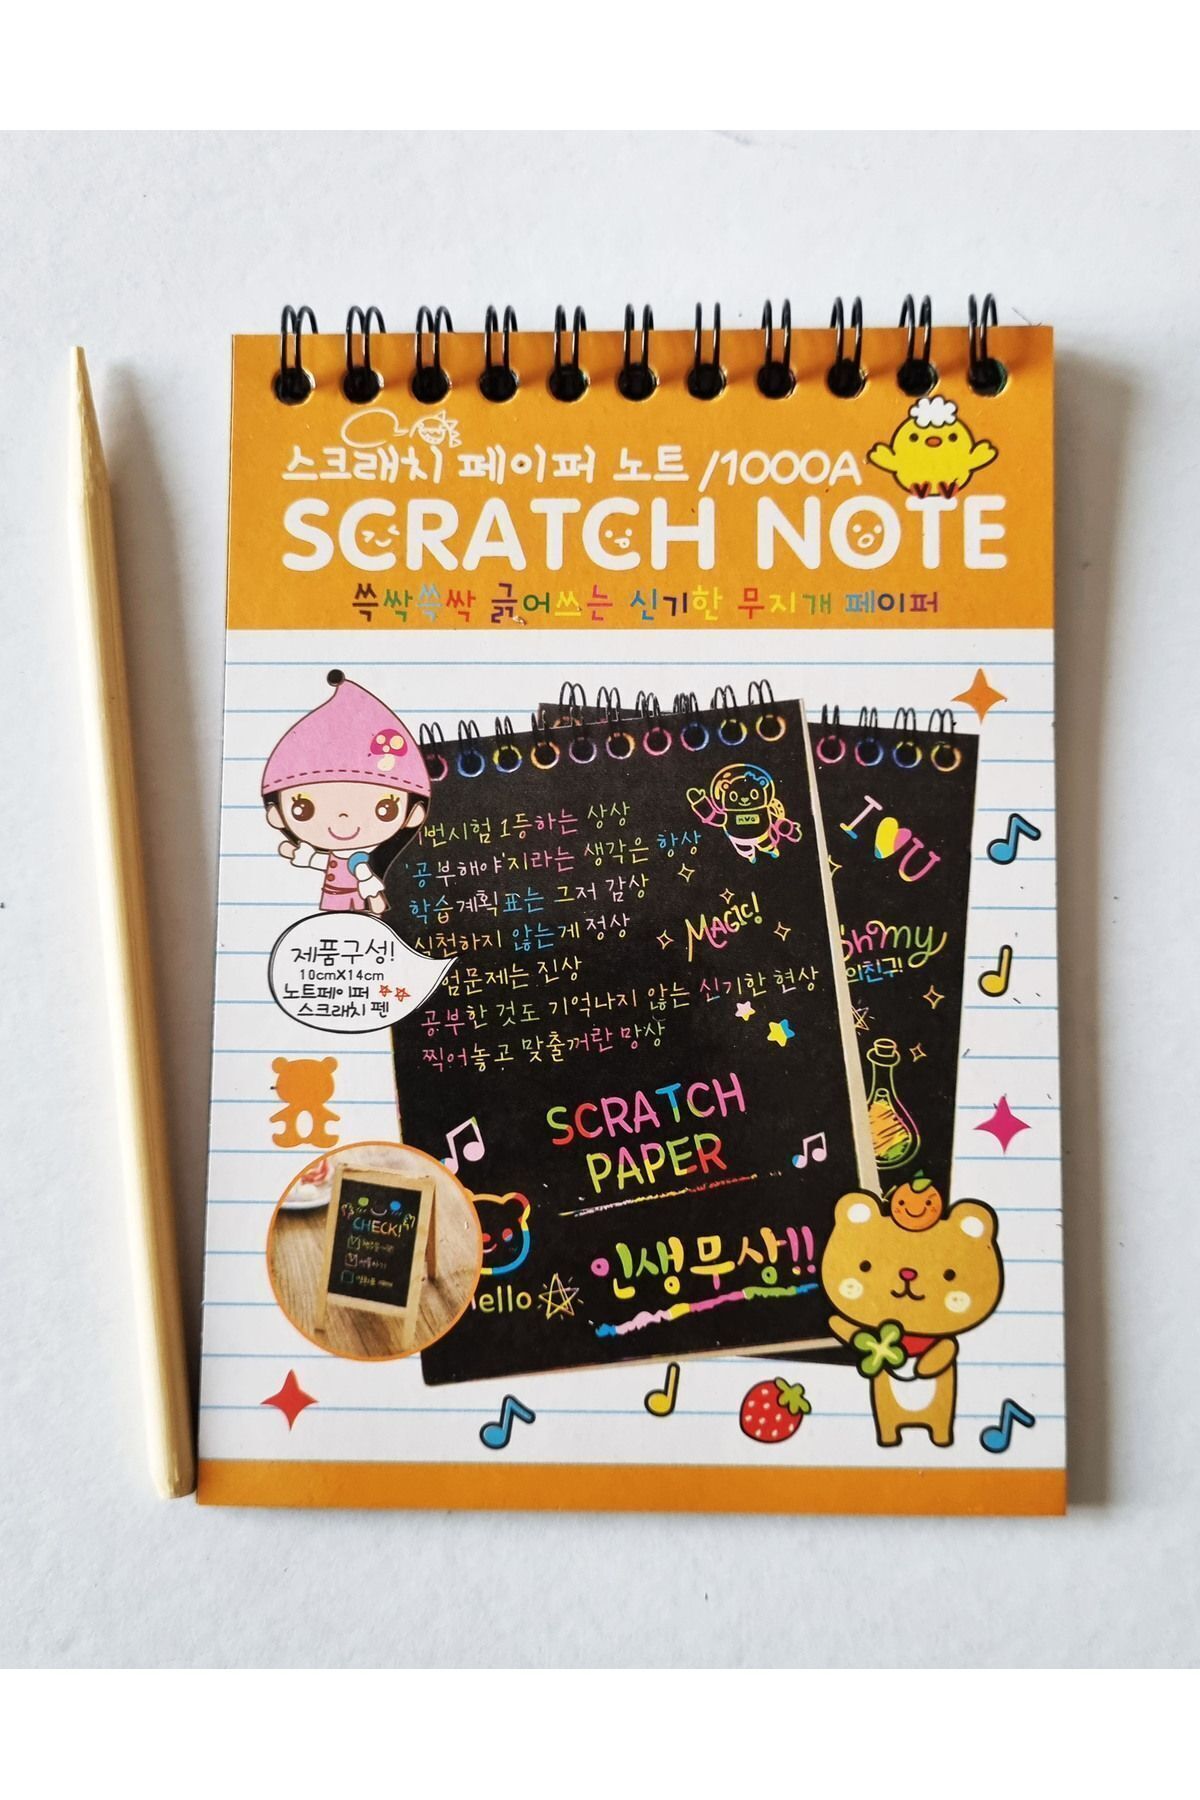 스크래치 페이퍼 노트 /1000A
SCRATCH NOTE
쓱싹쓱싹 긁어쓰는 신기한 무지개 페이퍼
번시험 1등하는 상상
'공부해야'지라는 생각은 항상
학습계획표는 그저 감상
실천하지 않는게 정상
험문제는 진상
공부한 것도 기억나지 않는 신기한 현상
찍어놓고 맞출꺼란 망상
MAGIC!
I U
oh my
의친구!
제품구성!
10cmX14cm
노트페이퍼
스크래치 펜
SCRATCH
PAPER
CHECK!
ello
인생무상!!